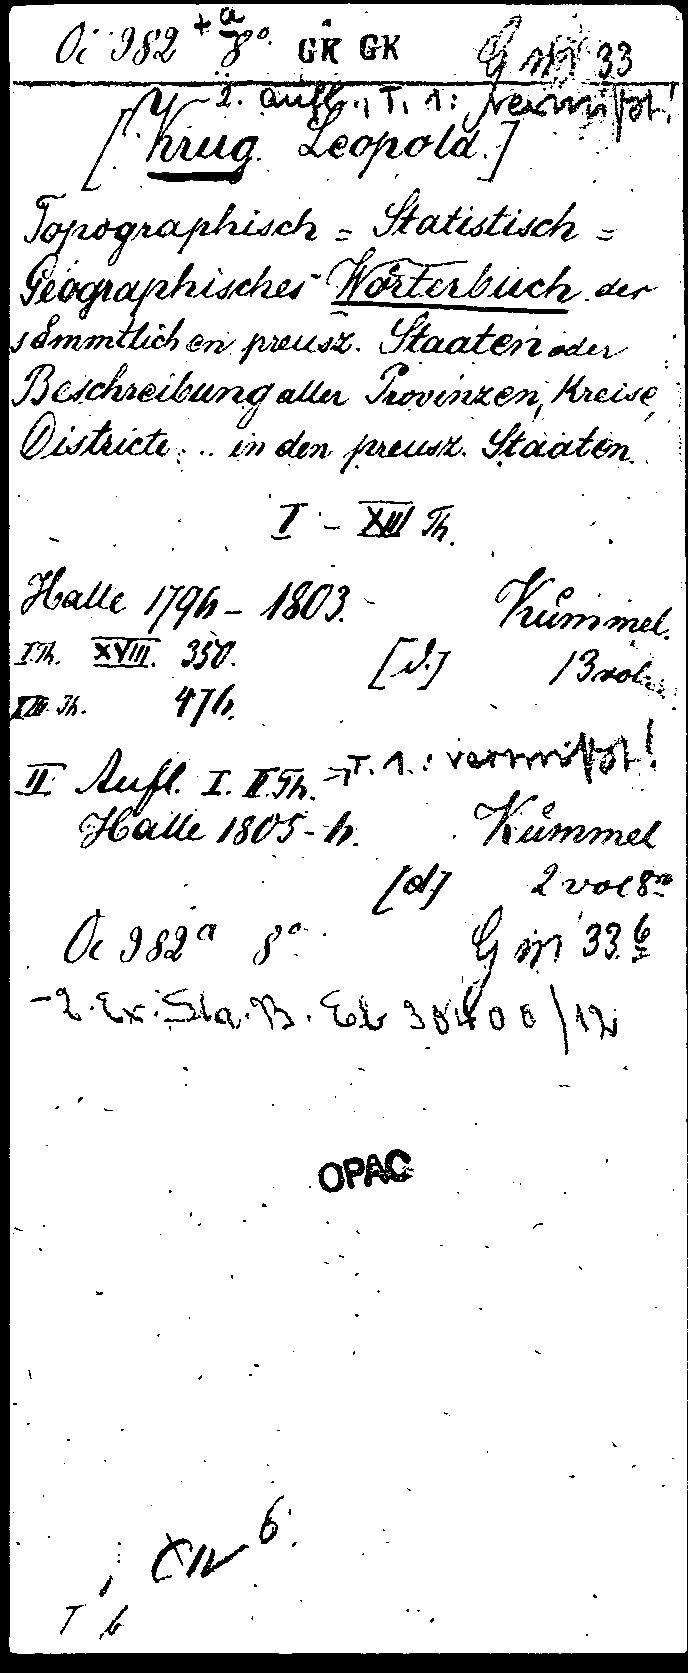 Oi 982 + a 8° GK GK G 33
2. Aufl., T. 1: vermißt!
[Krug. Leopold.]
Topographisch = Statistisch =
Geographisches Wörterbuch der
sämmtlichen preusz. Staaten oder
Beschreibung aller Provinzen, Kreise,
Districte ... in den preusz. Staaten.
I - XIII Th.
Halle 1796 - 1803. Kümmel.
I.Th. XVIII. 350. [d.] 13 vol.
XIII Th. 476.
II Aufl. I. II.Th. T. 1.: vermißt!
Halle 1805-6. Kümmel
[d] 2 vol 8°
Oi 982a 8° G 33 b
- 2. Ex.: Sta.B. 38400/12
OPAC
6.